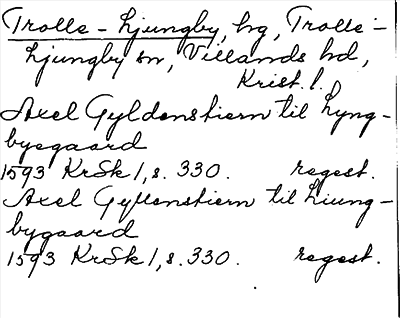 Trolle-Ljungby, hg, Trolle-
Ljungby sn, Villands hd,
Krist. l.
Axel Gyldenstiern til Lyng-
byegaard
1593 KrSk 1, s. 330. regest.
Axel Gyllenstiern til Liung-
bygaard
1593 KrSk 1, s. 330. regest.